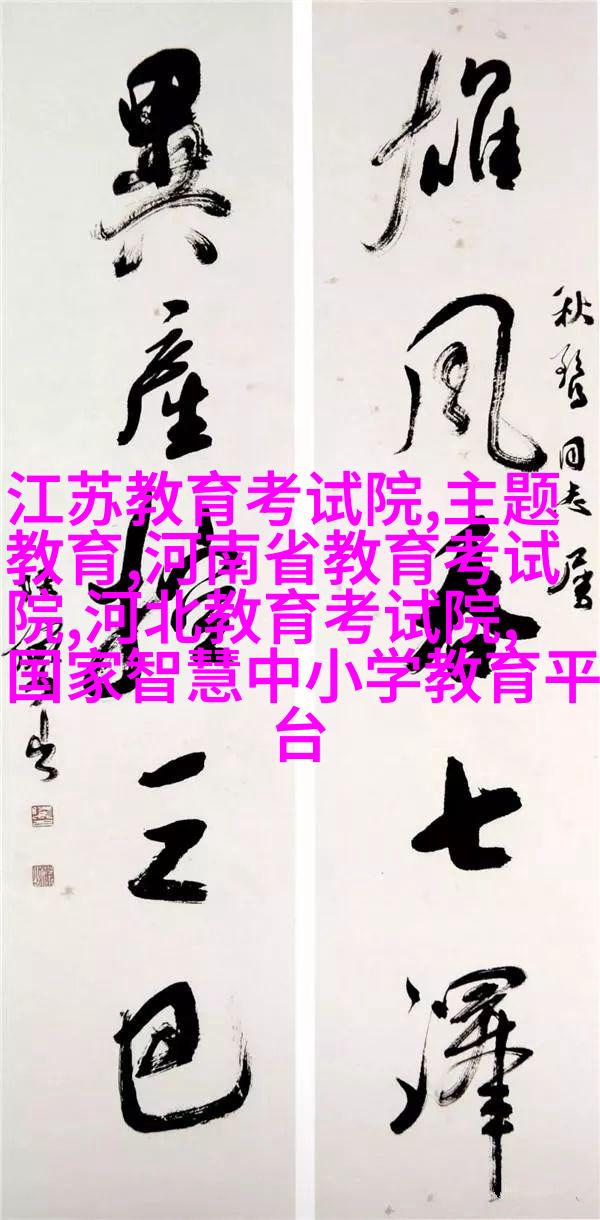 雄風吞七澤
秋 同志 属
異產控三巴
江苏教育考试院,主题
教育,河南省教育考试
院,河北教育考试院,
国家智慧中小学教育平
台